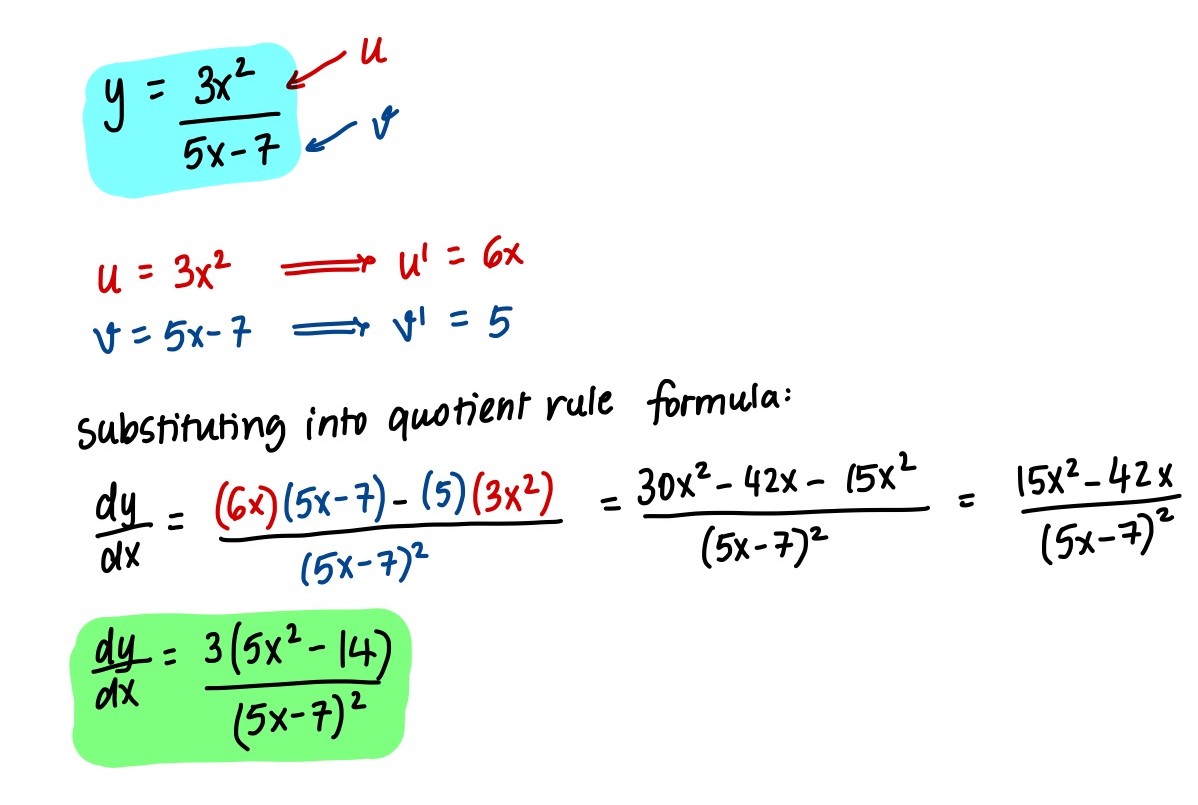 y = 3x² / 5x-7
u
v
u = 3x² ⟹ u' = 6x
v = 5x-7 ⟹ v' = 5
substituting into quotient rule formula:
dy/dx = (6x)(5x-7) - (5)(3x²) / (5x-7)² = 30x² - 42x - 15x² / (5x-7)² = 15x² - 42x / (5x-7)²
dy/dx = 3(5x² - 14) / (5x-7)²